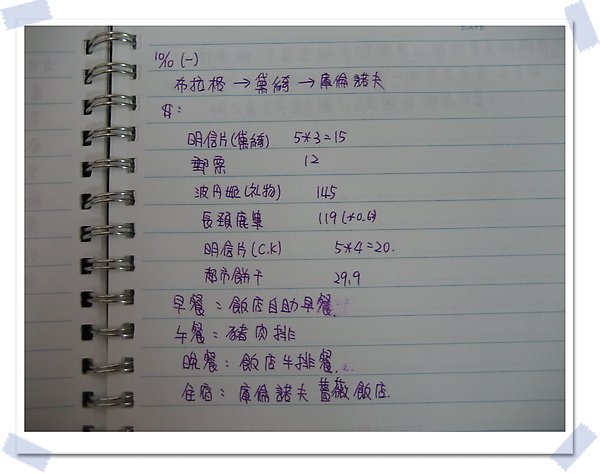 DATE
10/10 (一)
布拉格 → 黛綺 → 庫倫諾夫
$:
明信片(黛綺) 5*3=15
郵票 12
波丹妮(礼物) 145
長頸鹿巢 119(*0.6)
明信片(C.K) 5*4=20.
超市餅干 29.9
早餐:飯店自助早餐
午餐:豬肉排
晚餐:飯店牛排餐
住宿:庫倫諾夫薔薇飯店.